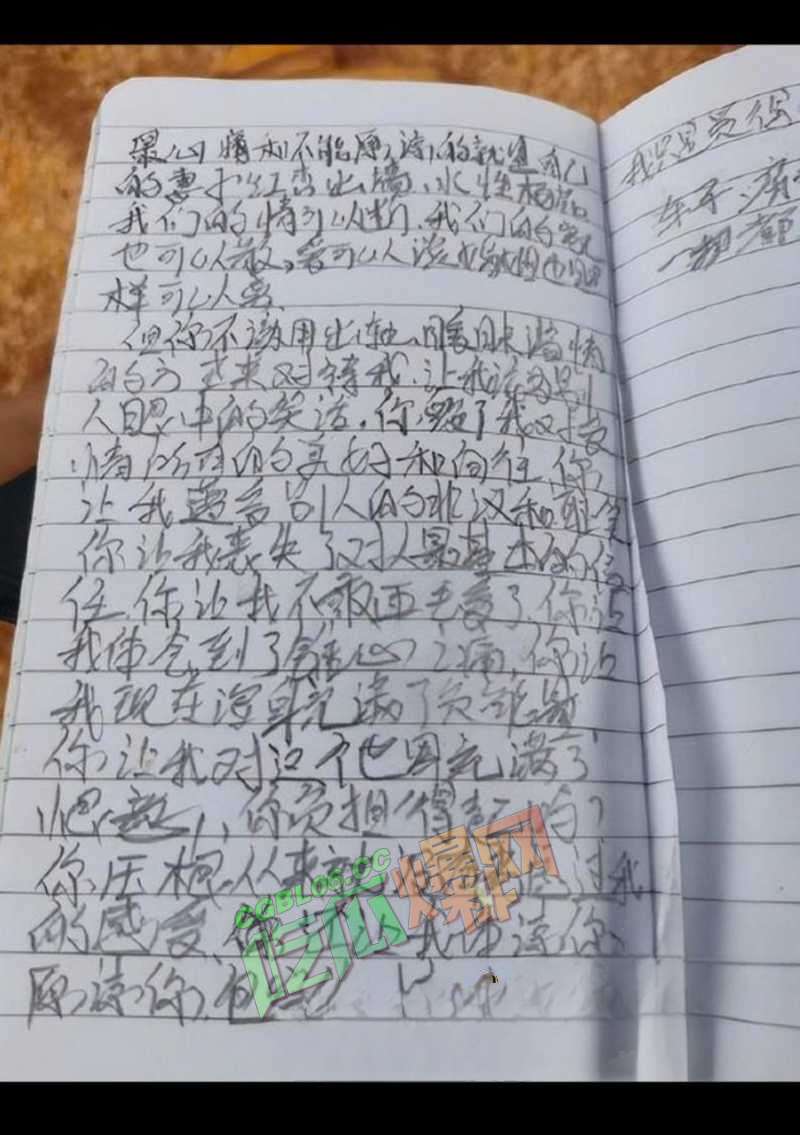 最心痛和不能原谅的就是自己
的妻子红杏出墙、水性杨花
我们的情可以断,我们的
也可以散,爱可以淡
样可以
但你不该用出轨、滥情
的方式来对待我,让我活为别
人眼中的笑话,你毁了我对爱
情所有的美好和向往,你
让我遭受别人的非议和
你让我丧失了对人最基本的信
任,你让我不敢再去爱了,你让
我体会到了锥心之痛,你让
我现在浑身充满了负能量
你让我对这个世界充满了
你负担得起吗?
你压根从来
我
的感受,你 我体谅你
原谅你,
我只是
车子、
一切都
CGBLOS.CC
吃瓜爆网